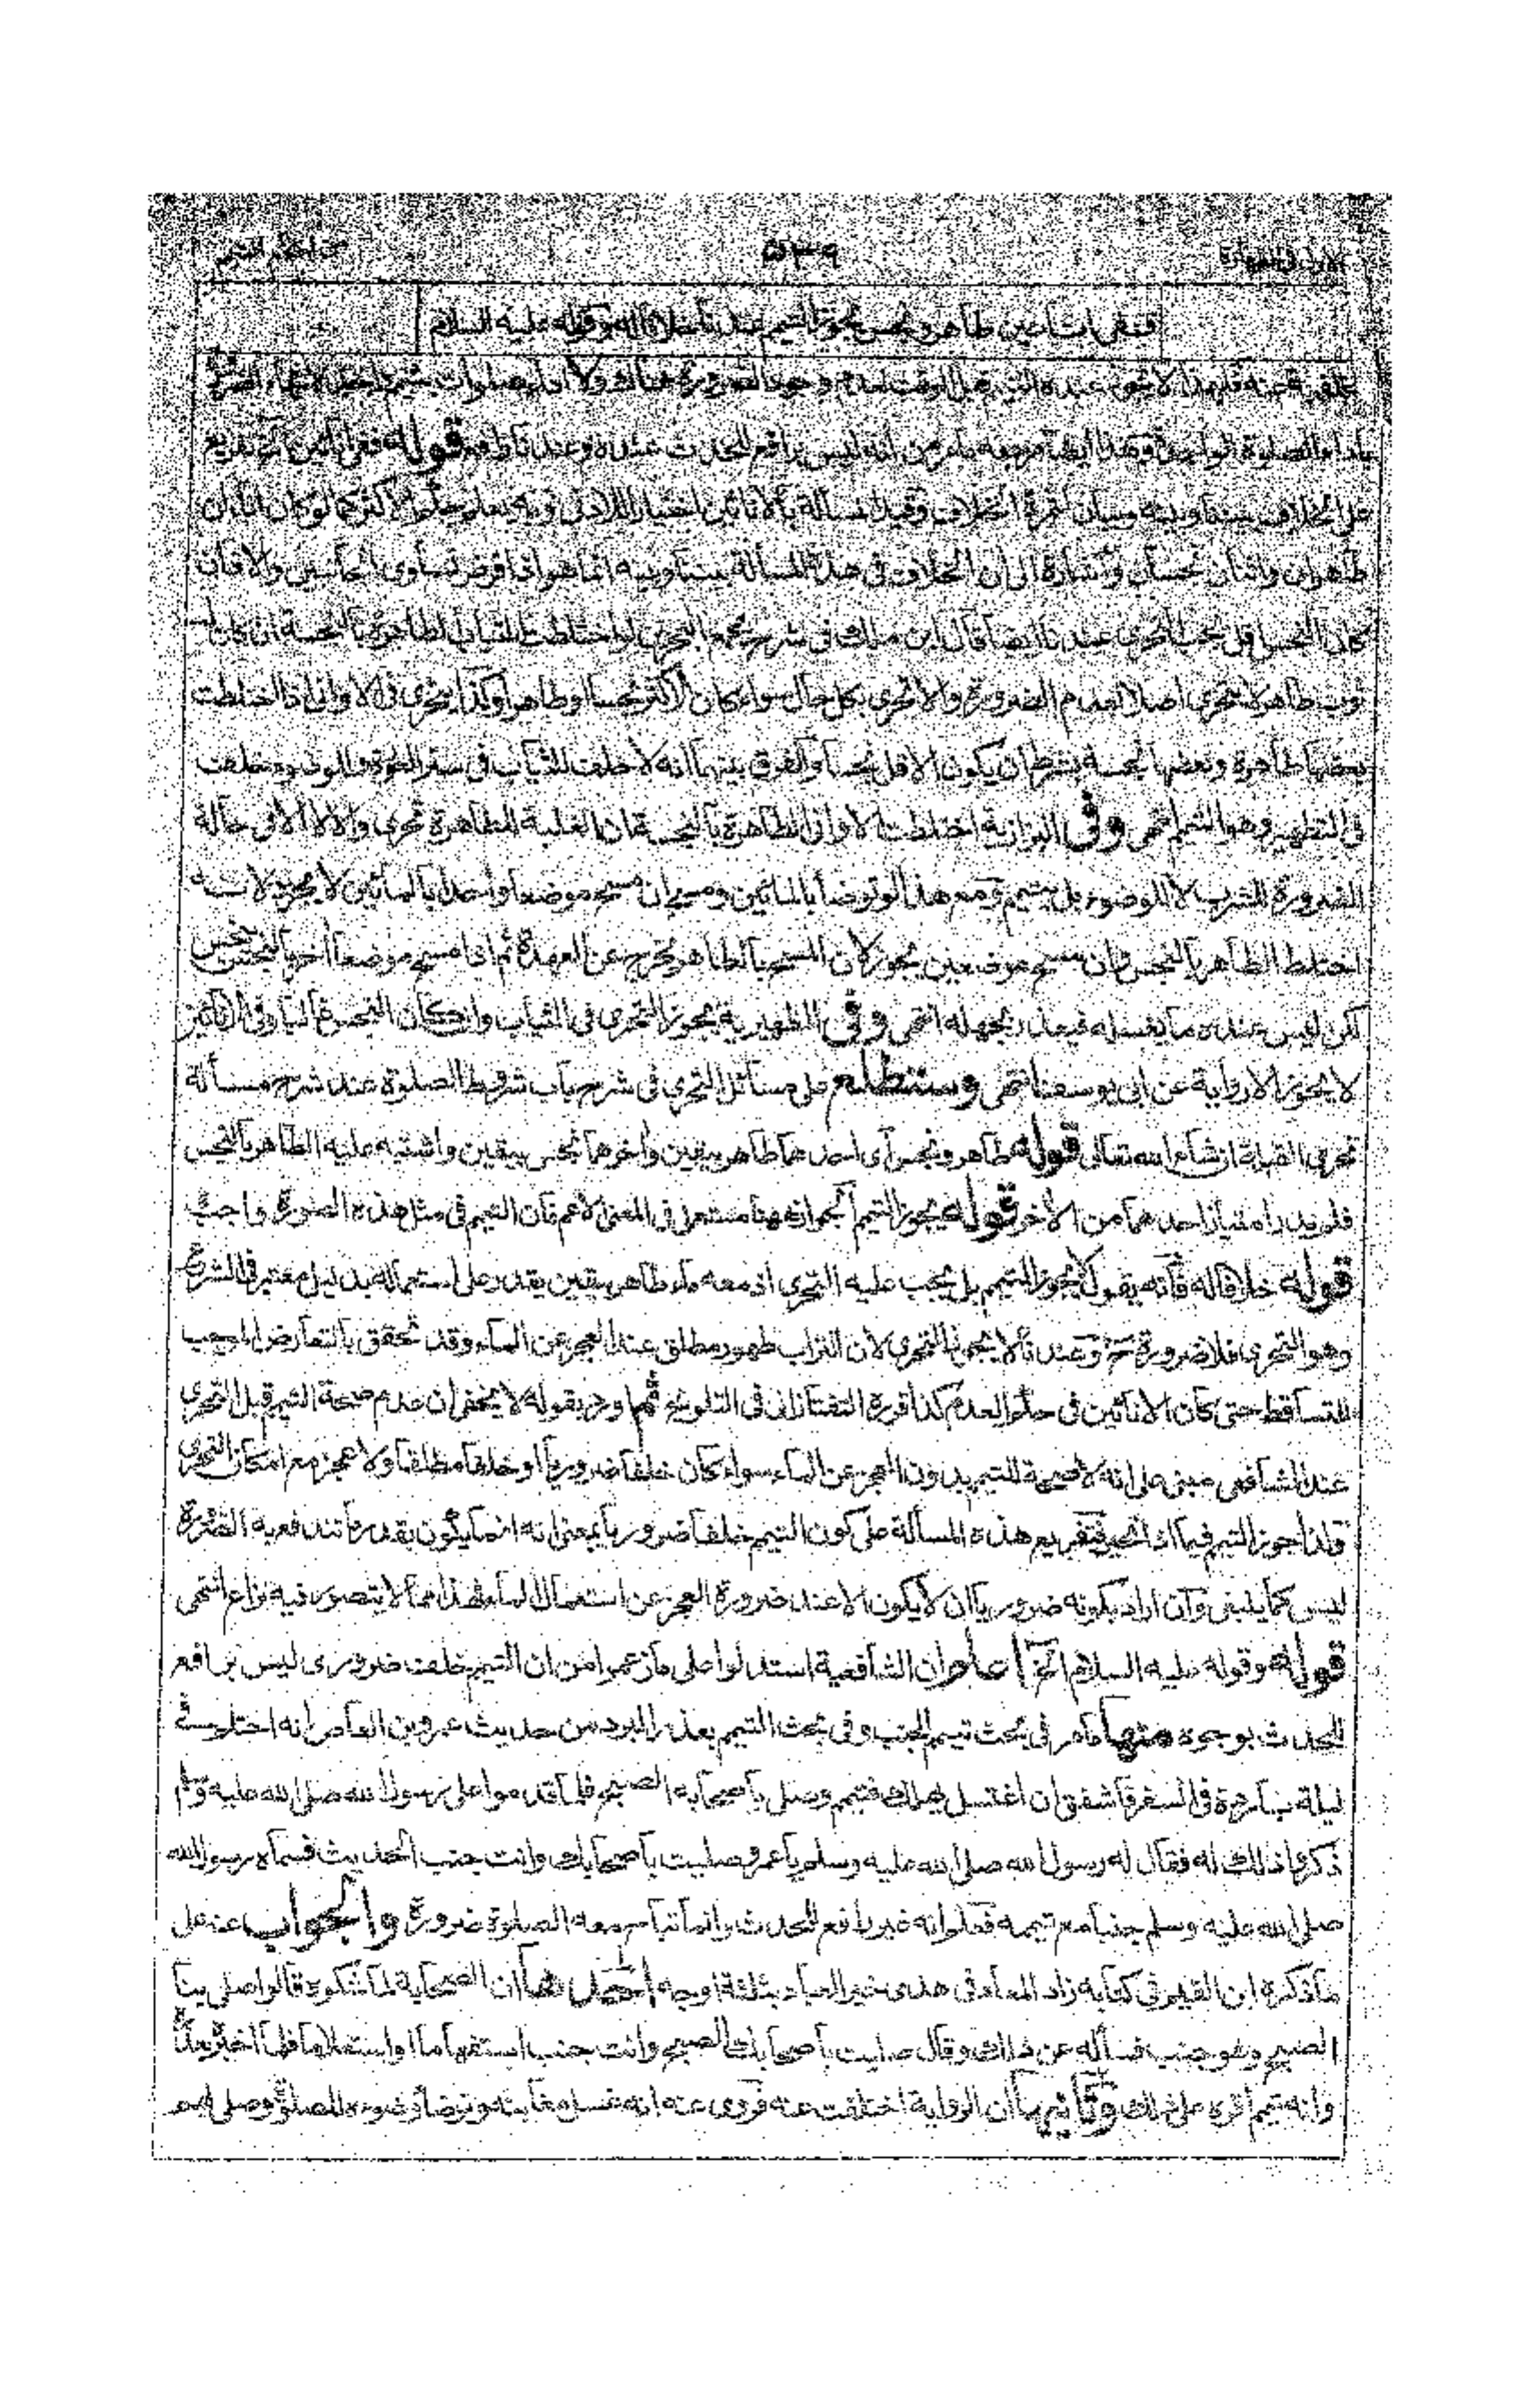 ففى اناءين طاهر ونجس يجوز التيمم عندنا خلافا له وقوله عليه السلام
باداء الصلوة الواحدة وهذا ايضا مرجعه مامر من انه ليس برافع للحدث عنده وعندنا رافع قوله ففى انائين آه تفريع
على الخلاف بيننا وبينه وبيان لثمرة الخلاف وقيد المسألة بالانائين
طاهران واناءان نجسان واشارة الى ان الخلاف فى هذه المسألة بيننا وبينه انما هو اذا فرض تساوى الجانبين والا فان
كان النجس اقل يجب التحرى عندنا ايضا قال ابن ملك فى شرح مجمع البحرين لو اختلطت الثياب الطاهرة بالنجسة ان كان له
ثوب طاهر لا يتحرى اصلا لعدم الضرورة والا تحرى بكل حال سواء كان الاكثر نجسا او طاهرا وكذا يتحرى فى الاوانى اذا اختلطت
بعضها طاهرة وبعضها نجسة بشرط ان يكون الاقل نجسا والفرق بينهما انه لا خلف للثياب فى ستر العورة وللوضوء خلف
فى التطهير وهو التيمم انتهى وفى البزازية اختلطت الاوانى الطاهرة بالنجسة ان الغلبة للطاهرة تحرى والا لا الا فى حالة
الضرورة للشرب لا للوضوء بل يتيمم ومع هذا لو توضأ بالمائين ومسح ان مسح موضعا واحدا بالمائين لا يجوز لانه
اختلط الطاهر بالنجس وان مسح موضعين يجوز لان المسح بالطاهر يخرج عن العهدة ثم اذا مسح موضعا آخر بالنجس ينجس
لكن ليس عنده ما يغسله فيعذر لجهله انتهى وفى الظهيرية يجوز التحرى فى الثياب وان كان النجس غالبا وفى الاناء
لا يجوز الا رواية عن ابى يوسف انتهى وستطلع على مسائل التحرى فى شرح باب شروط الصلوة عند شرح مسألة
تحرى القبلة ان شاء الله تعالى قوله طاهر ونجس اى احدهما طاهر بيقين وآخرهما نجس بيقين واشتبه عليه الطاهر بالنجس
فلم يدر امتياز احدهما من الآخر قوله يجوز التيمم الجواز ههنا مستعمل فى المعنى الاعم فان التيمم فى مثل هذه الصورة واجب
قوله خلافا له فانه يقول لا يجوز التيمم بل يجب عليه التحرى اذ معه ماء طاهر بيقين يقدر على استعماله بدليل معتبر فى الشرع
وهو التحرى فلا ضرورة ح وعندنا لا يجوز التحرى لان التراب طهور مطلق عند العجز عن الماء وقد تحقق بالتعارض الموجب
للتساقط حتى كان الانائين فى حكم العدم كذا قرره التفتازانى فى التلويح ثم اورد بقوله لا يخفى ان عدم صحة التيمم قبل التحرى
عند الشافعى مبنى على انه لا صحة للتيمم بدون العجز عن الماء سواء كان خلفا ضروريا او خلفا مطلقا ولا عجز مع امكان التحرى
ولذا جوز التيمم فيما اذا تحير فتفريع هذه المسألة على كون التيمم خلفا ضروريا بمعنى انه انما يكون بقدر ما تندفع به الضرورة
ليس كما ينبغى وان اراد بكونه ضروريا ان لا يكون الا عند ضرورة العجز عن استعمال الماء فهذا مما لا يتصور فيه نزاع انتهى
قوله وقوله عليه السلام الخ اعلم ان الشافعية استدلوا على ما زعموا من ان التيمم خلف ضرورى ليس برافع
للحدث بوجوه منها ما مر فى بحث تيمم الجنب وفى بحث التيمم بعذر البرد من حديث عمرو بن العاص انه احتلم فى
ليلة باردة فى السفر فاشفق ان اغتسل يهلك فتيمم وصلى باصحابه الصبح فلما قدموا على رسول الله صلى الله عليه وسلم
ذكروا ذلك له فقال له رسول الله صلى الله عليه وسلم يا عمرو صليت باصحابك وانت جنب الحديث فسماه رسول الله
صلى الله عليه وسلم جنبا مع تيممه فعلم انه غير رافع للحدث وانما تباح معه الصلوة ضرورة والجواب عنه على
ما ذكره ابن القيم فى كتابه زاد المعاد فى هدى خير العباد بثلثة اوجه احدها ان الصحابة لما شكوه قالوا صلى بنا
الصبح وهو جنب فسأله عن ذلك وقال صليت باصحابك الصبح وانت جنب استفهاما واستعلاما فلما اخبره بعذره
وانه تيمم اقره على ذلك وثانيها ان الرواية اختلفت عنه فروى عنه انه غسل مغابنه وتوضأ وضوءه للصلوة وصلى بهم